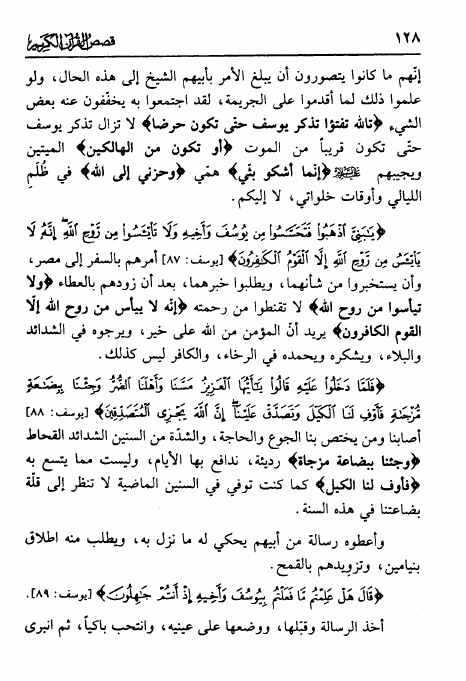 ١٢٨ قصص القرآن الكريم
إنّهم ما كانوا يتصورون أن يبلغ الأمر بأبيهم الشيخ إلى هذه الحال، ولو
علموا ذلك لما أقدموا على الجريمة، لقد اجتمعوا به يخفّفون عنه بعض
الشيء ﴿تالله تفتؤا تذكر يوسف حتّى تكون حرضا﴾ لا تزال تذكر يوسف
حتّى تكون قريباً من الموت ﴿أو تكون من الهالكين﴾ الميتين
ويجيبهم ﴿إنّما أشكو بثّي﴾ همّي ﴿وحزني إلى الله﴾ في ظُلَمِ
الليالي وأوقات خلواتي، لا إليكم.
﴿يَٰبَنِىَّ ٱذْهَبُوا۟ فَتَحَسَّسُوا۟ مِن يُوسُفَ وَأَخِيهِ وَلَا تَا۟يْـَٔسُوا۟ مِن رَّوْحِ ٱللَّهِ ۖ إِنَّهُۥ لَا
يَا۟يْـَٔسُ مِن رَّوْحِ ٱللَّهِ إِلَّا ٱلْقَوْمُ ٱلْكَٰفِرُونَ﴾ [يوسف: ٨٧] أمرهم بالسفر إلى مصر،
وأن يستخبروا من شأنهما، ويطلبوا خبرهما، بعد أن زودهم بالعطاء ﴿ولا
تيأسوا من روح الله﴾ لا تقنطوا من رحمته ﴿إنّه لا ييأس من روح الله إلّا
القوم الكافرون﴾ يريد أنّ المؤمن من الله على خير، ويرجوه في الشدائد
والبلاء، ويشكره ويحمده في الرخاء، والكافر ليس كذلك.
﴿فَلَمَّا دَخَلُوا۟ عَلَيْهِ قَالُوا۟ يَٰٓأَيُّهَا ٱلْعَزِيزُ مَسَّنَا وَأَهْلَنَا ٱلضُّرُّ وَجِئْنَا بِبِضَٰعَةٍ
مُّزْجَىٰةٍ فَأَوْفِ لَنَا ٱلْكَيْلَ وَتَصَدَّقْ عَلَيْنَآ ۖ إِنَّ ٱللَّهَ يَجْزِى ٱلْمُتَصَدِّقِينَ﴾ [يوسف: ٨٨]
أصابنا ومن يختص بنا الجوع والحاجة، والشدّة من السنين الشدائد القحاط
﴿وجئنا ببضاعة مزجاة﴾ رديئة، ندافع بها الأيام، وليست مما يتسع به
﴿فأوف لنا الكيل﴾ كما كنت توفي في السنين الماضية لا تنظر إلى قلّة
بضاعتنا في هذه السنة.
وأعطوه رسالة من أبيهم يحكي له ما نزل به، ويطلب منه اطلاق
بنيامين، وتزويدهم بالقمح.
﴿قَالَ هَلْ عَلِمْتُم مَّا فَعَلْتُم بِيُوسُفَ وَأَخِيهِ إِذْ أَنتُمْ جَٰهِلُونَ﴾ [يوسف: ٨٩].
أخذ الرسالة وقبّلها، ووضعها على عينيه، وانتحب باكياً، ثم انبرى